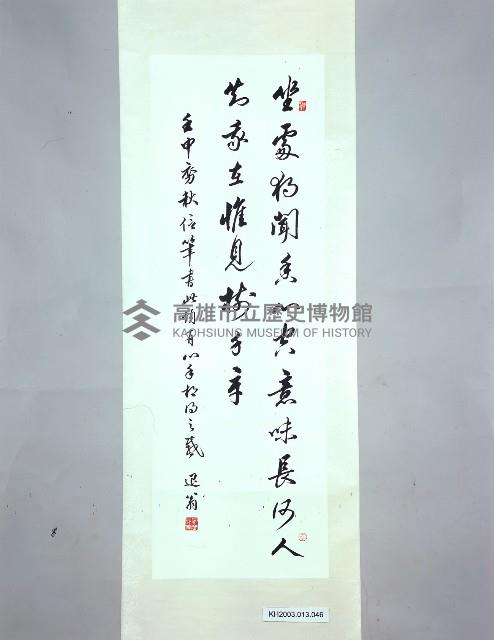 坐處獨聞香心空意味長何人
知我在惟見樹千章
壬申秋信筆書此頗有心手相得之感 退翁
高雄市立歷史博物館
KAOHSIUNG MUSEUM OF HISTORY
KH2003.013.046